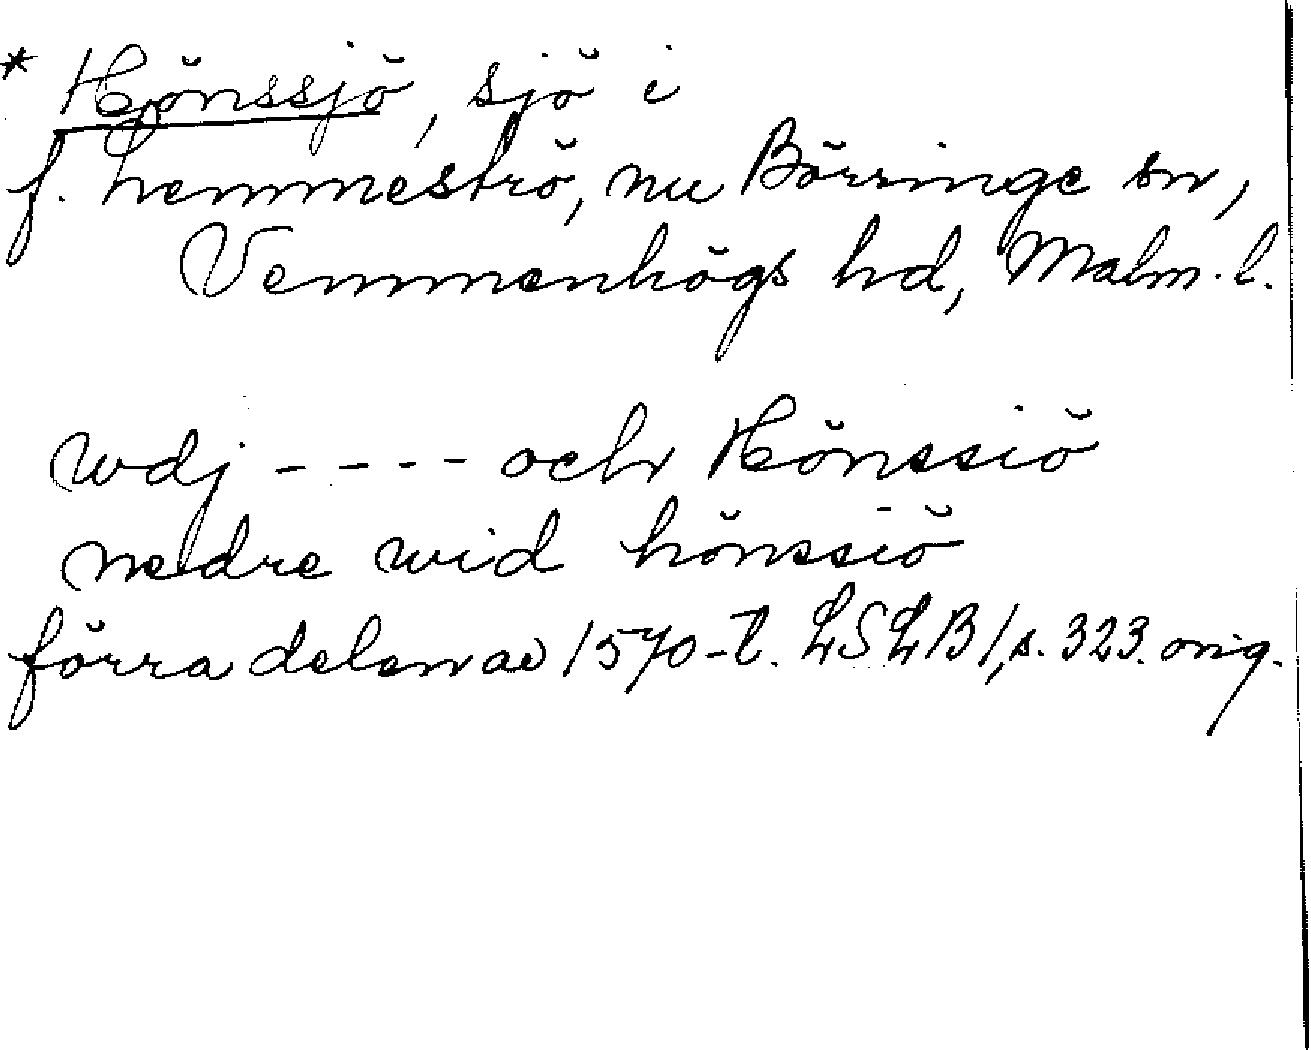 * Hönssjö, sjö i
f. Lemmeströ, nu Börringe sn,
Vemmenhögs hd, Malm. l.
wdj - - - - och Hönssiö
nedre wid hönssiö
förra delen av 1570-t. LSLB 1, s. 323. orig.